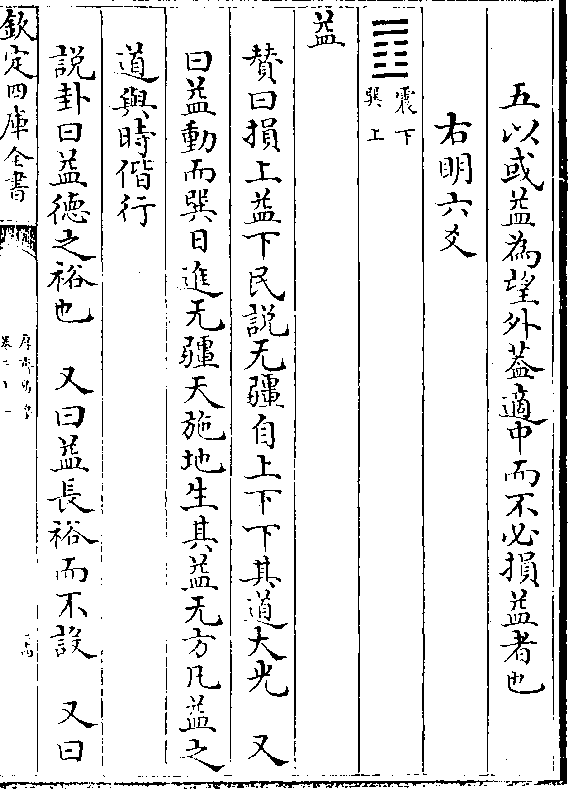 五以或益為望外蓋適中而不必損益者也
右明六爻
䷩ 震下巽上
益
贊曰損上益下民說无疆自上下下其道大光　又
曰益動而巽日進无疆天施地生其益无方凡益之
道與時偕行
說卦曰益德之裕也　又曰益長裕而不設　又曰
欽定四庫全書